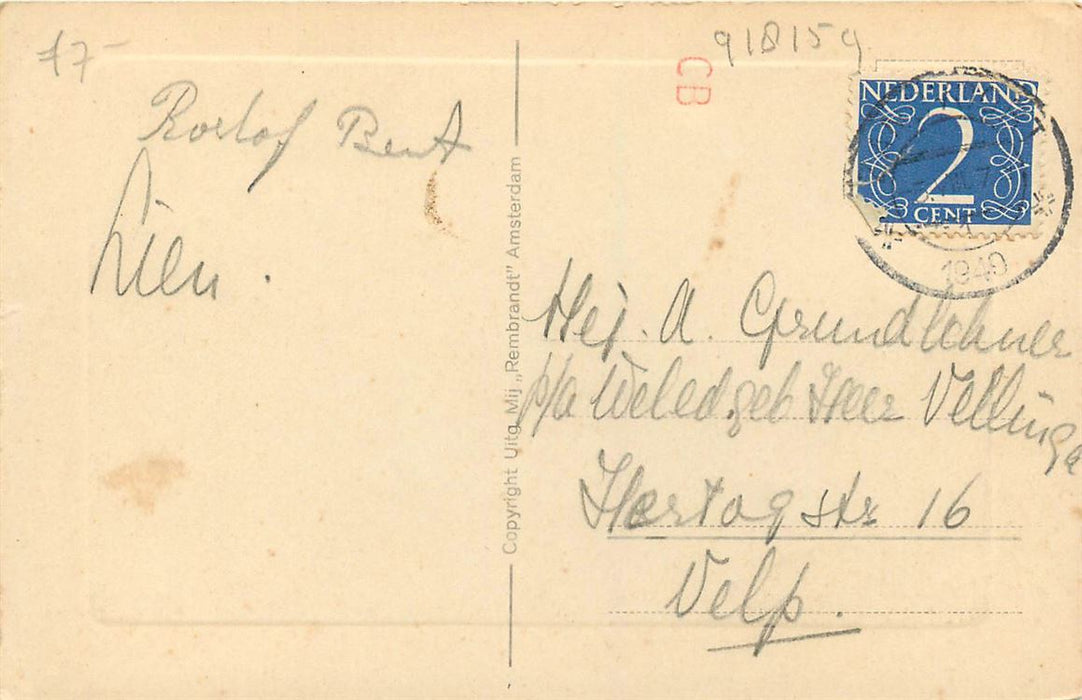 17-
918159
CB
NEDERLAND
2
CENT
1949
Roelof Bent
Lien.
Copyright Uitg. Mij „Rembrandt" Amsterdam
Mej. A. Grundlehner
p/a Weled.geb Heer Vellinga
Hertogstr 16
Velp.